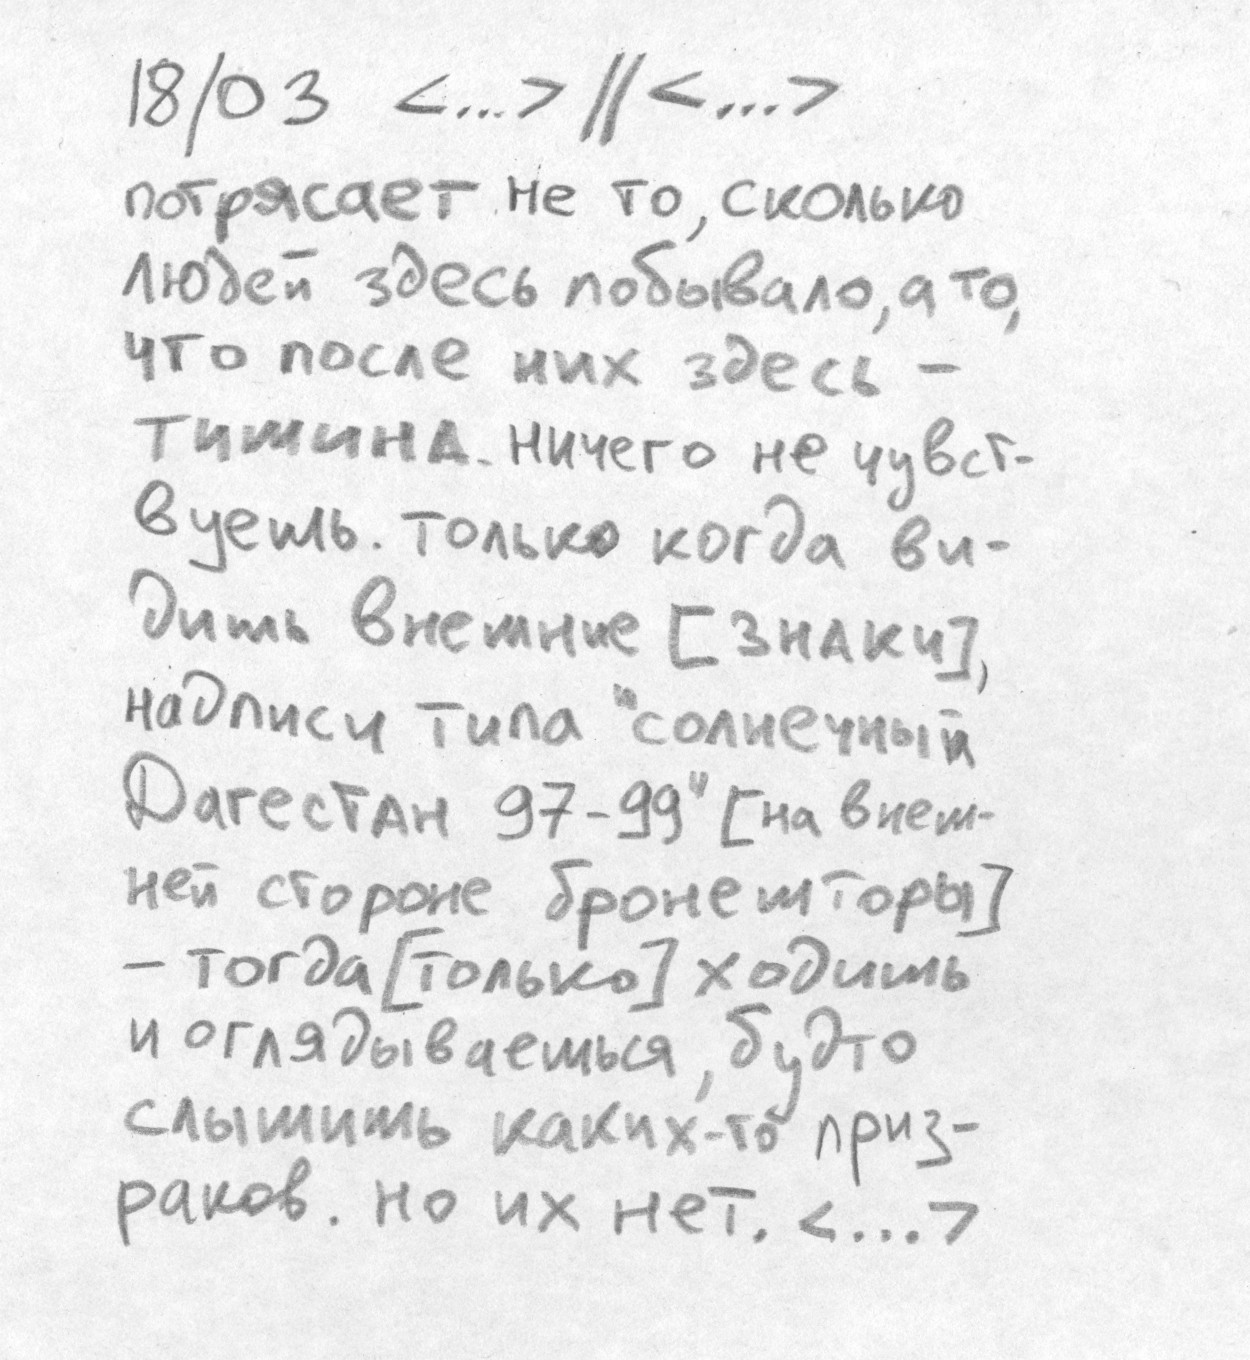 18/03 <...> // <...>
потрясает не то, сколько
людей здесь побывало, а то,
что после них здесь –
тишина. ничего не чувст-
вуешь. только когда ви-
дишь внешние [знаки],
надписи типа "солнечный
Дагестан 97-99" [на внеш-
ней стороне бронешторы]
– тогда [только] ходишь
и оглядываешься, будто
слышишь каких-то приз-
раков. но их нет. <...>